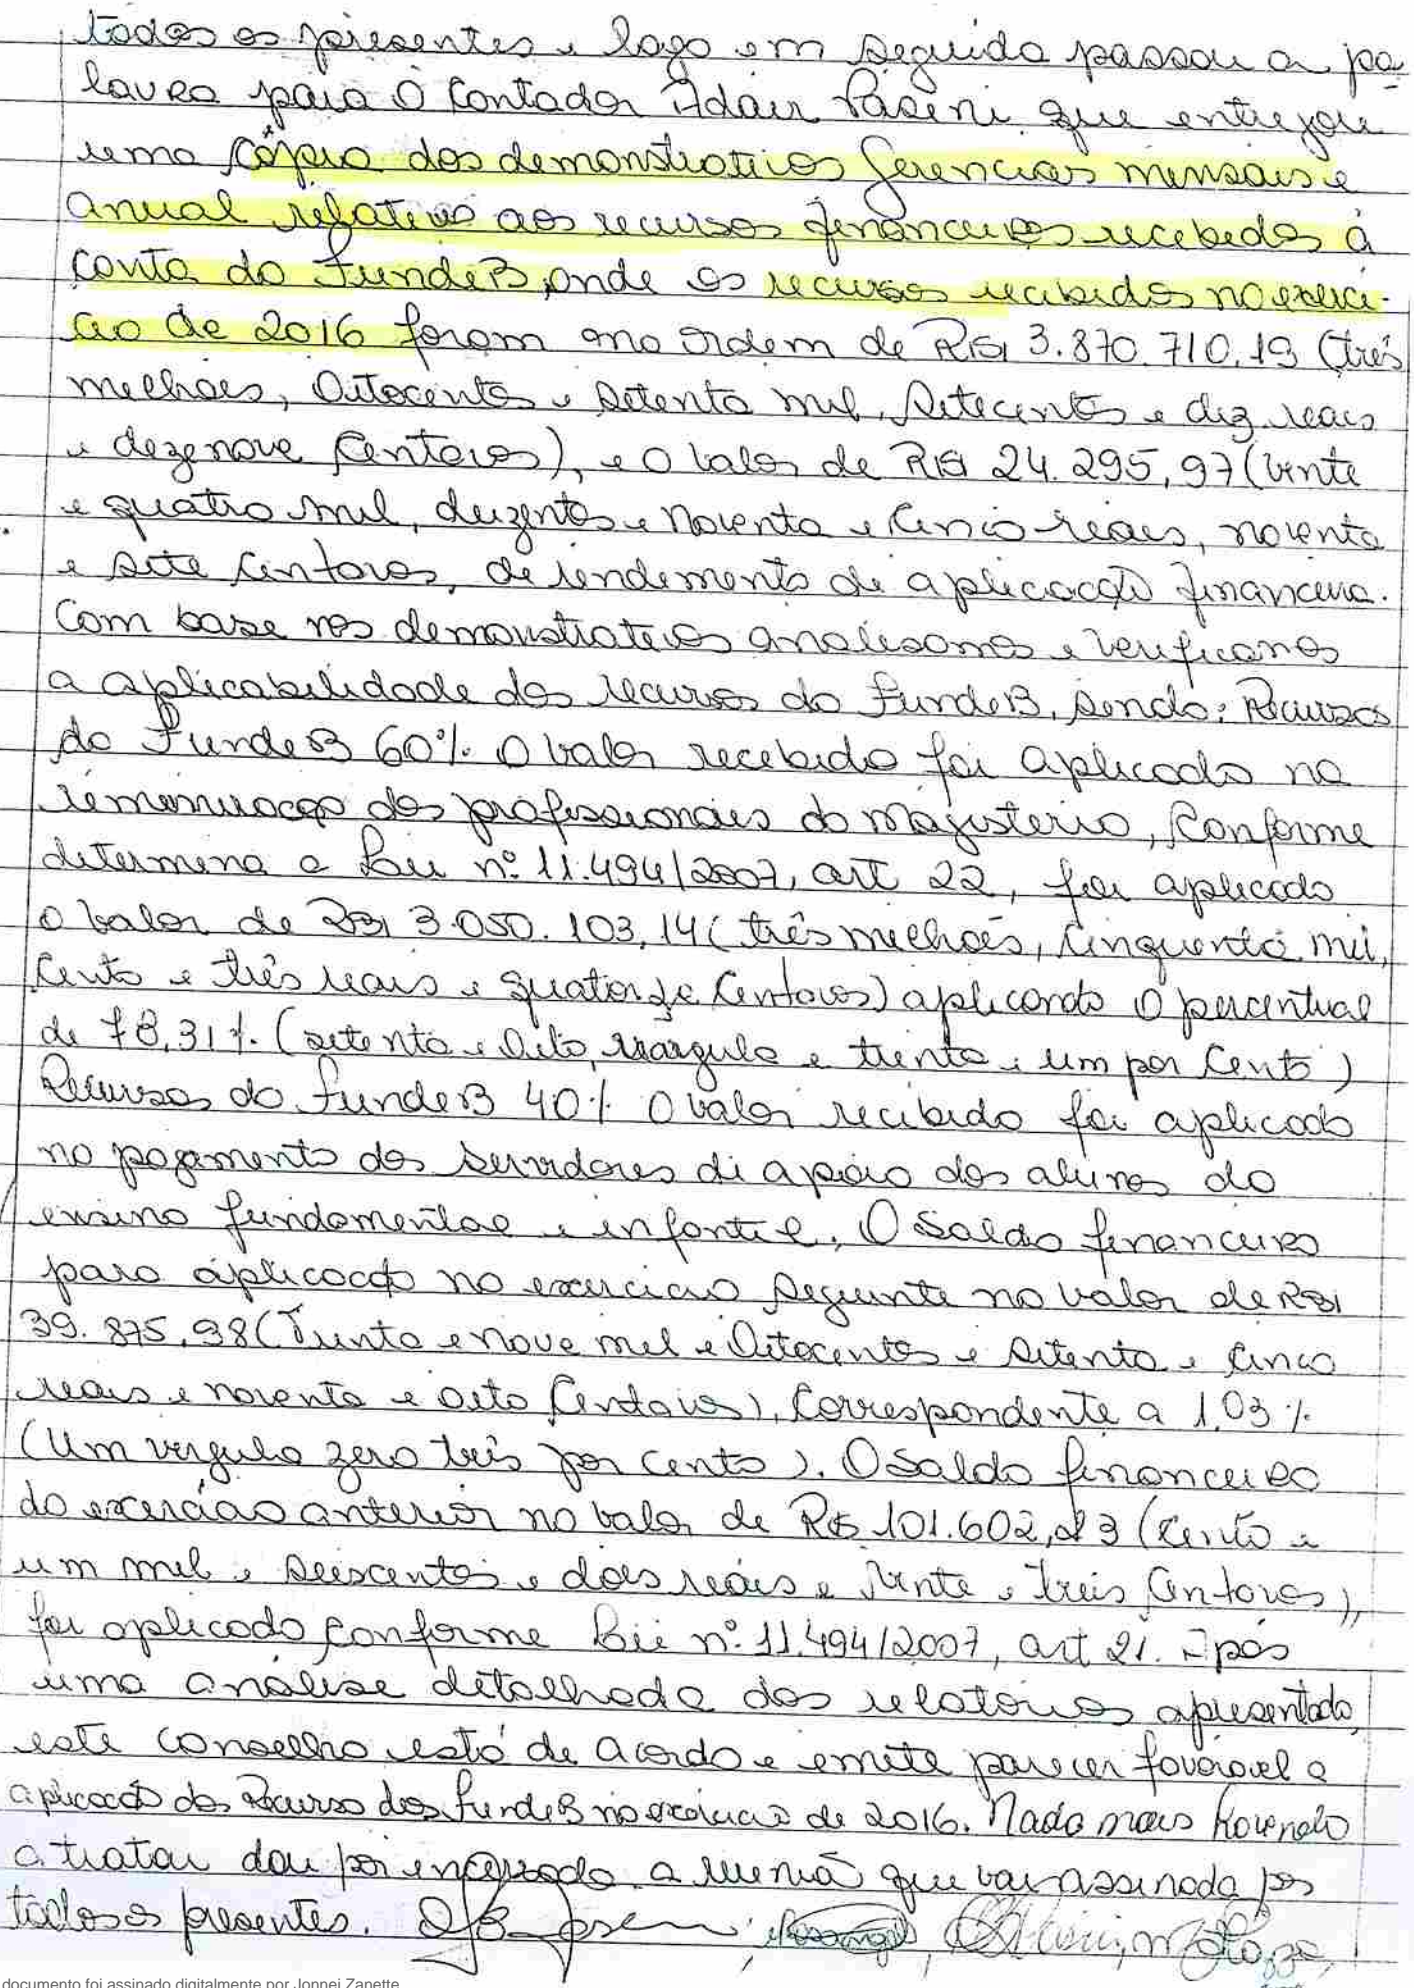 todos os presentes e logo em seguida passou a pa
lavra para o Contador Adair Paseni que entregou
uma Cópia dos demonstrativos Gerenciais mensais e
anual relativos aos recursos financeiros recebidos à
conta do FundeB, onde os recursos recebidos no exercí-
cio de 2016 foram na ordem de R$ 3.870.710,19 (três
milhões, Oitocentos e setenta mil, Setecentos e dez reais
e dezenove Centavos), e o valor de R$ 24.295,97 (vinte
e quatro mil, duzentos e noventa e Cinco reais, noventa
e sete Centavos, de rendimento de aplicação financeira.
Com base nos demonstrativos analisamos e verificamos
a aplicabilidade dos recursos do FundeB, sendo: Recursos
do FundeB 60% O valor recebido foi aplicado na
remuneração dos profissionais do magistério, Conforme
determina a Lei nº 11.494/2007, art 22, foi aplicado
o valor de R$ 3.050.103,14 (três milhões, Cinquenta mil,
Cento e três reais e quatorze Centavos) aplicando o percentual
de 78,31% (setenta e Oito, vírgula e trinta e um por Cento)
Recursos do FundeB 40% O valor recebido foi aplicado
no pagamento dos servidores di apoio dos alunos do
ensino fundamental e infantil. O Saldo financeiro
para aplicação no exercício seguinte no valor de R$
39.875,98 (Trinta e nove mil e Oitocentos e setenta e Cinco
reais e noventa e oito Centavos), Correspondente a 1,03%
(Um vírgula zero três por cento). O Saldo financeiro
do exercício anterior no valor de R$ 101.602,23 (Cento e
um mil e Seiscentos e dois reais e Vinte e três Centavos),
foi aplicado Conforme Lei nº 11.494/2007, art 21. Após
uma análise detalhada dos relatórios apresentado,
este conselho está de acordo e emite parecer favorável a
aplicação dos Recurso dos FundeB no exercício de 2016. Nada mais havendo
a tratar dou por encerrada a reunião que vai assinada por
todos os presentes.
documento foi assinado digitalmente por Jonnei Zanette